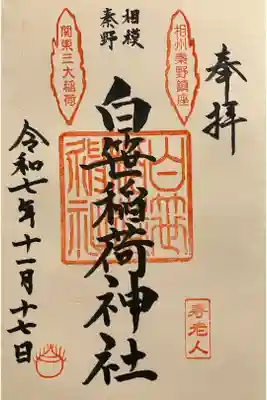 奉拝
相州秦野鎮座
相模
秦野
関東三大稲荷
白笹稲荷神社
白笹稲荷社
寿老人
令和七年十一月十七日